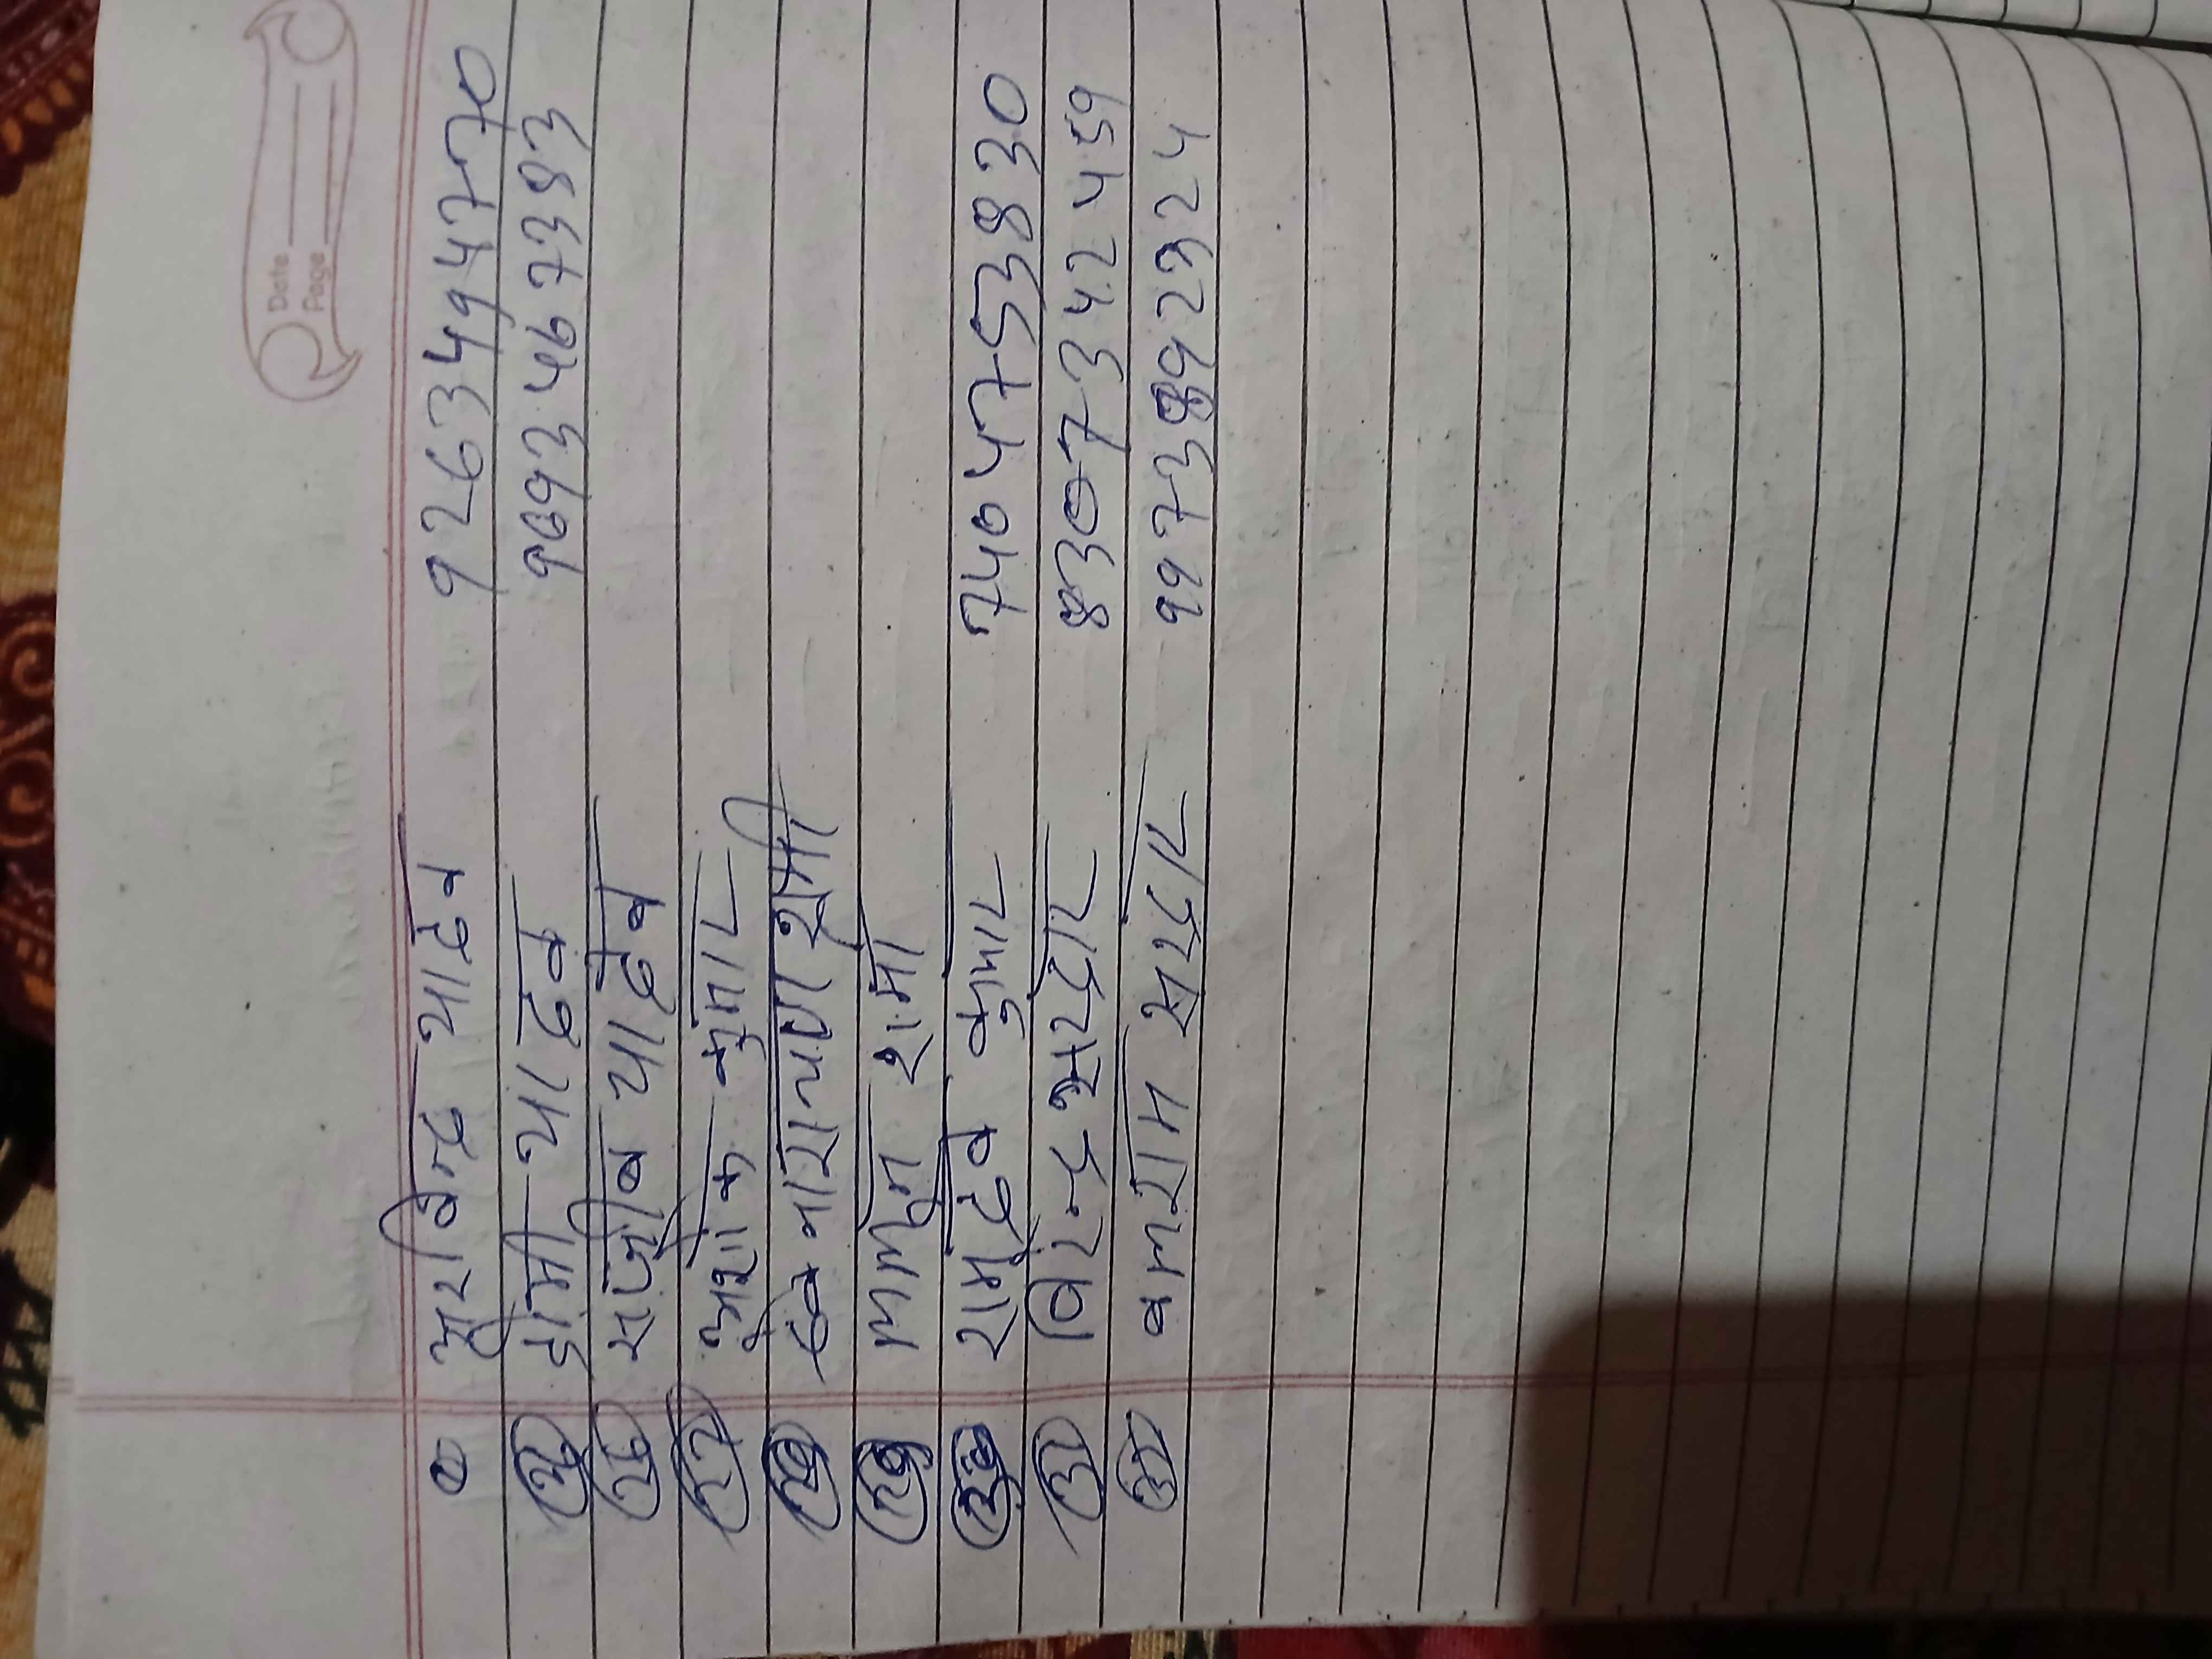 Date
Page
सुरविन्द्र यादव 9263494770
डोमी यादव 9693467383
राजीव यादव
अशोक कुमार
देव नारायण शर्मा
लालदेन शर्मा
29
30 रामदेव कुमार 7404753830
31 विरेन्द्र सरदार 8307342459
बलराम सरदार 9973892924